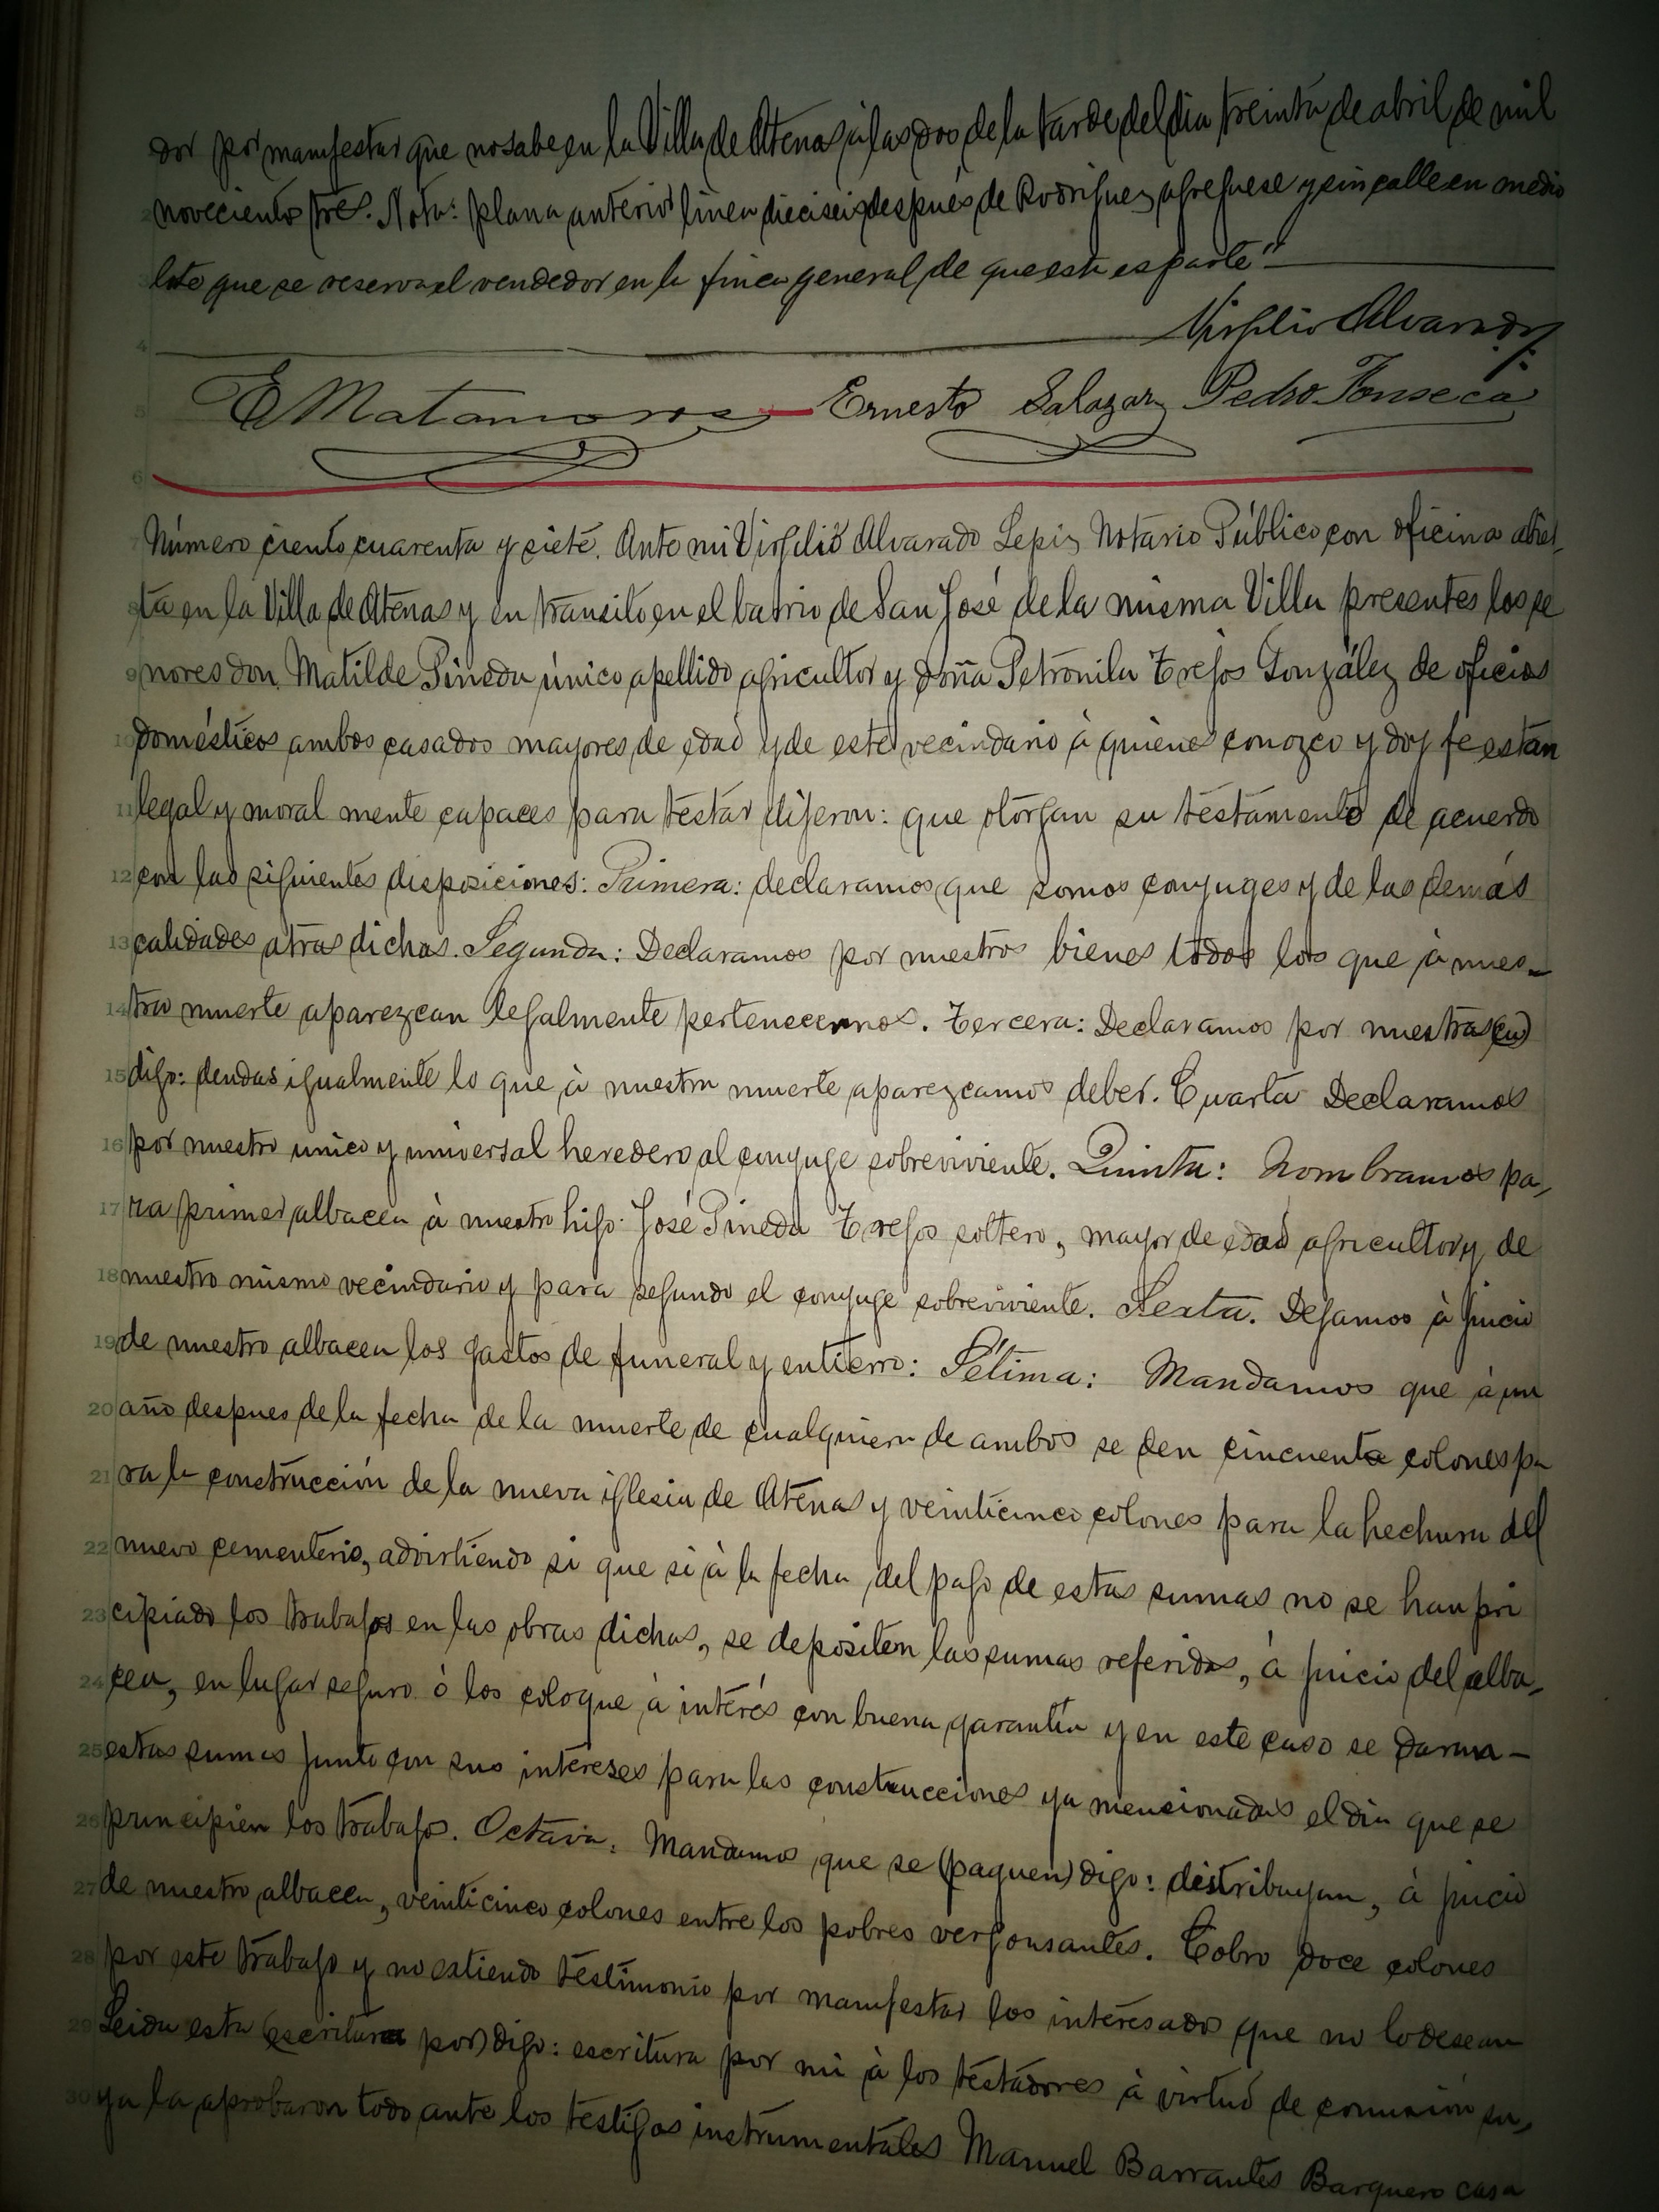 dor por manifestar que no sabe en la Villa de Atenas á las dos de la tarde del dia treinta de abril de mil
2 novecientos tres. Nota: plana anterior linea dieciseis despues de Rodriguez agreguese "y sin calle en medio
3 lote que se reserva el vendedor en la finca general de que esta es parte"
4 Virgilio Alvarado
5 E Matamoros Ernesto Salazar Pedro Fonseca
6
7 Número ciento cuarenta y siete. Ante mi Virgilio Alvarado Lepiz Notario Público con oficina abier-
8 ta en la Villa de Atenas y en tránsito en el barrio de San José de la misma Villa presentes los se
9 nores don Matilde Pineda único apellido agricultor y doña Petronila Trejos González de oficios
10 domésticos ambos casados mayores de edad y de este vecindario à quienes conozco y doy fe están
11 legal y moral mente capaces para testar dijeron: que otorgan su testamento de acuerdo
12 con las siguientes disposiciones: Primera: declaramos que somos conyuges y de las demás
13 calidades atras dichas. Segunda: Declaramos por nuestros bienes todos los que à nues-
14 tra muerte aparezcan legalmente pertenecernos. Tercera: Declaramos por nuestras (cu)
15 digo: deudas igualmente lo que à nuestra muerte aparezcamos deber. Cuarta Declaramos
16 por nuestro unico y universal heredero al conyuge sobreviviente. Quinta: Nombramos pa-
17 ra primer albacea à nuestro hijo José Pineda Trejos soltero, mayor de edad agricultor y de
18 nuestro mismo vecindario y para segundo el conyuge sobreviviente. Sexta. Dejamos à juicio
19 de nuestro albacea los gastos de funeral y entierro: Sétima: Mandamos que à un
20 año despues de la fecha de la muerte de cualquiera de ambos se den cincuenta colones pa
21 ra la construcción de la nueva iglesia de Atenas y veinticinco colones para la hechura del
22 nuevo cementerio, advirtiendo si que si à la fecha del pago de estas sumas no se han pri
23 cipiado los trabajos en las obras dichas, se depositen las sumas referidas, à juicio del alba-
24 cea, en lugar seguro ò los coloque à interés con buena garantía y en este caso se daran -
25 estas sumas junto con sus intereses para las construcciones ya mencionadas el dia que se
26 principien los trabajos. Octava. Mandamos que se (paguen) digo: distribuyan, à juicio
27 de nuestro albacea, veinticinco colones entre los pobres vergonsantes. Cobro doce colones
28 por este trabajo y no estiendo testimonio por manifestar los interesados que no lo desean
29 Leida esta (escritura por) digo: escritura por mi à los testadores à virtud de comisión su-
30 ya la aprobaron todo ante los testigos instrumentales Manuel Barrantes Barquero casa